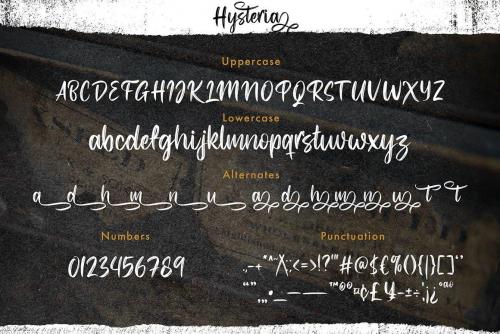 Hysteria
Uppercase
ABCDEFGHIJKLMNOPQRSTUVWXYZ
Lowercase
abcdefghijklmnopqrstuvwxyz
Alternates
a d h m n u a d h m n u t t
Numbers
0123456789
Punctuation
.,-+*"^~X/:;<=>!?'"#@$€%(){|}[]‘’
“”„•_–—™©®¤¢£¥–±÷·¡¿ªº